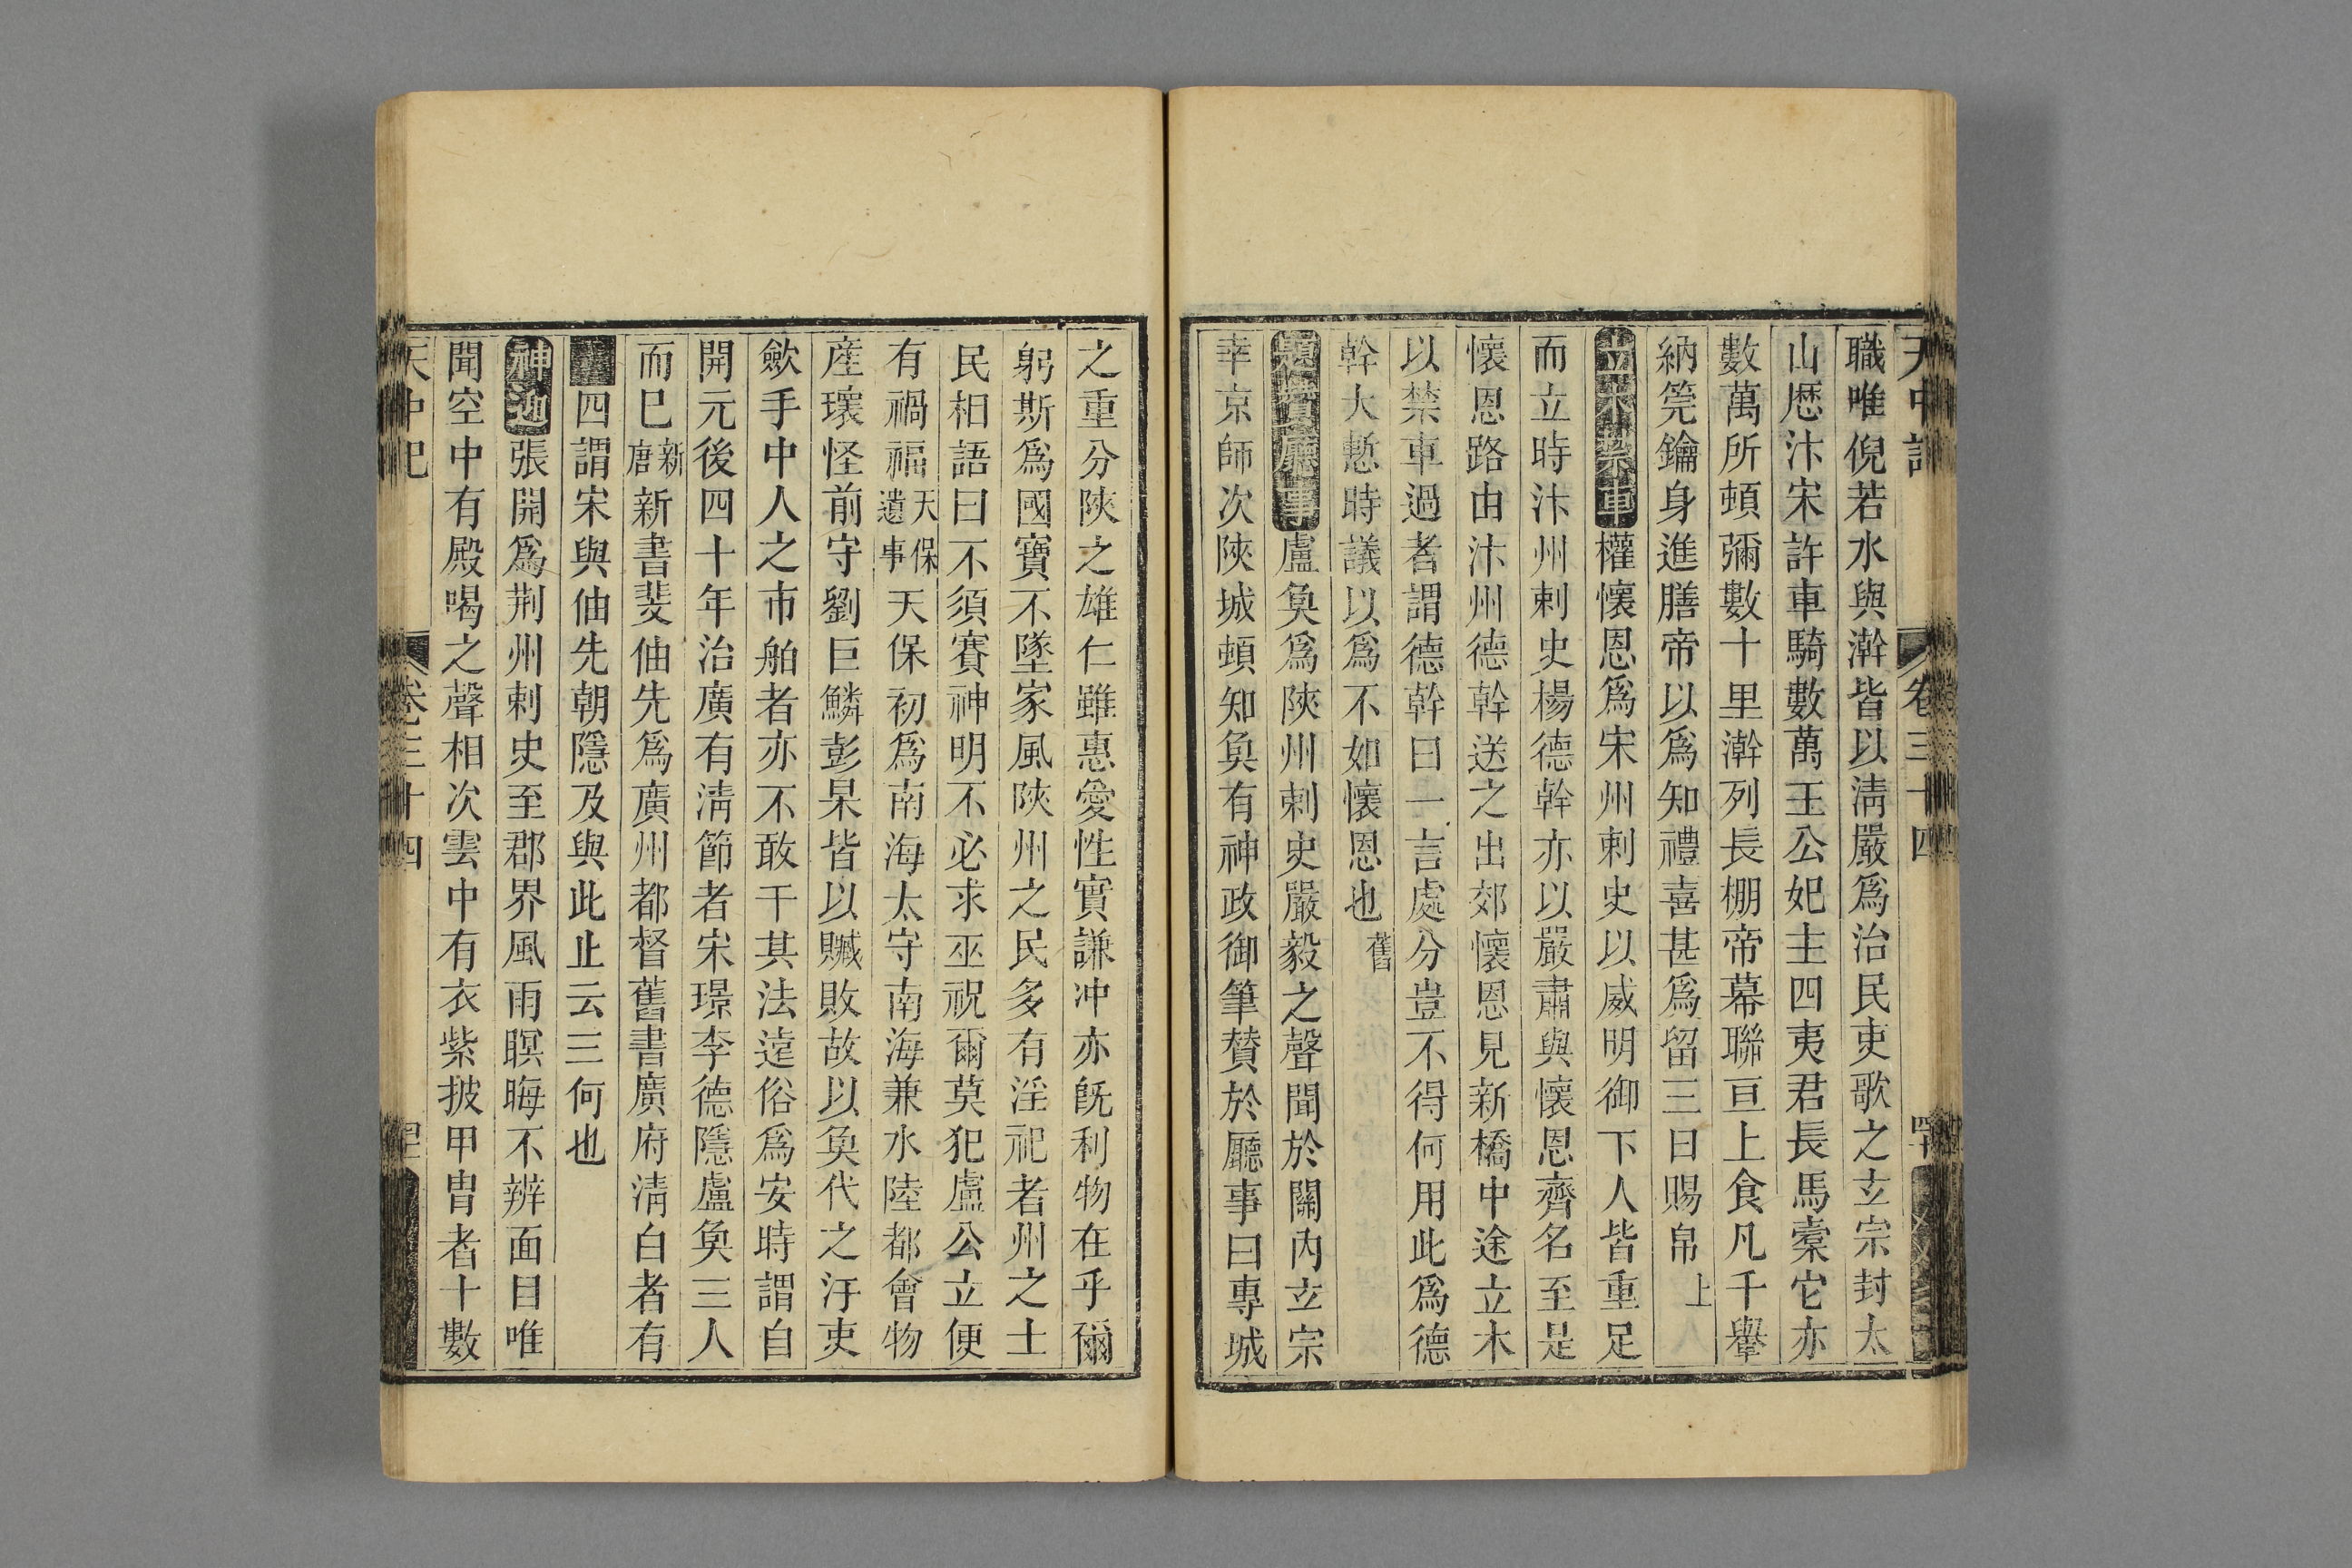 天中記
卷三十四
職唯倪若水與澣皆以淸嚴爲治民吏歌之玄宗封太
山歷汴宋許車騎數萬王公妃主四夷君長馬橐它亦
數萬所頓彌數十里澣列長棚帝幕聯亘上食凡千轝
納筦鑰身進膳帝以爲知禮喜甚爲留三日賜帛上
立木禁車權懷恩爲宋州刺史以威明御下人皆重足
而立時汴州刺史楊德幹亦以嚴肅與懷恩齊名至是
懷恩路由汴州德幹送之出郊懷恩見新橋中途立木
以禁車過者謂德幹曰一言處分豈不得何用此爲德
幹大慙時議以爲不如懷恩也舊
題贊廳事盧奐爲陝州刺史嚴毅之聲聞於關內玄宗
幸京師次陝城頓知奐有神政御筆賛於廳事曰專城
之重分陝之雄仁雖惠愛性實謙冲亦旣利物在乎爾
躬斯爲國寶不墜家風陝州之民多有淫祀者州之士
民相語曰不須賽神明不必求巫祝爾莫犯盧公立便
有禍福天保遺事天保初爲南海太守南海兼水陸都會物
産瓌怪前守劉巨鱗彭杲皆以贓敗故以奐代之汙吏
歛手中人之市舶者亦不敢干其法遠俗爲安時謂自
開元後四十年治廣有淸節者宋璟李德隱盧奐三人
而巳新唐新書斐伷先爲廣州都督舊書廣府淸白者有
四謂宋與伷先朝隱及與此止云三何也
神迎張開爲荆州刺史至郡界風雨暝晦不辨面目唯
聞空中有殿喝之聲相次雲中有衣紫披甲冑者十數
天中記
卷三十四